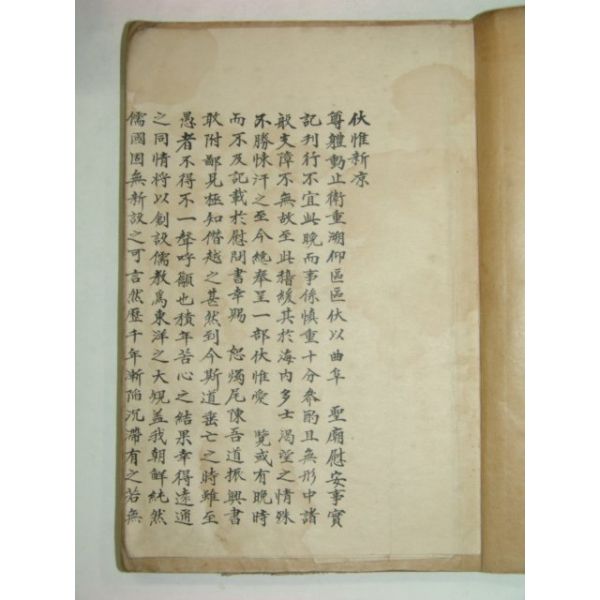 伏惟新凉
尊軆動止衛重溯仰區區伏以曲阜 聖廟慰安事實
記刊行不宜此晩而事係愼重十分參酌且無形中諸
般支障不無故至此稽緩其於海內多士渴望之情殊
不勝悚汗之至今總奉呈一部伏惟愛 覽或有晩時
而不及記載於慰問書幸賜 恕燭尾陳吾道振興書
敢附鄙見極知僭越之甚然到今斯道垂亡之時雖至
愚者不得不一聲呼顲也積年苦心之結果幸得遠邇
之同情將以創設儒敎爲東洋之大䂓盖我朝鮮純然
儒國因無新設之可言然歷千年漸陷沉滯有之若無